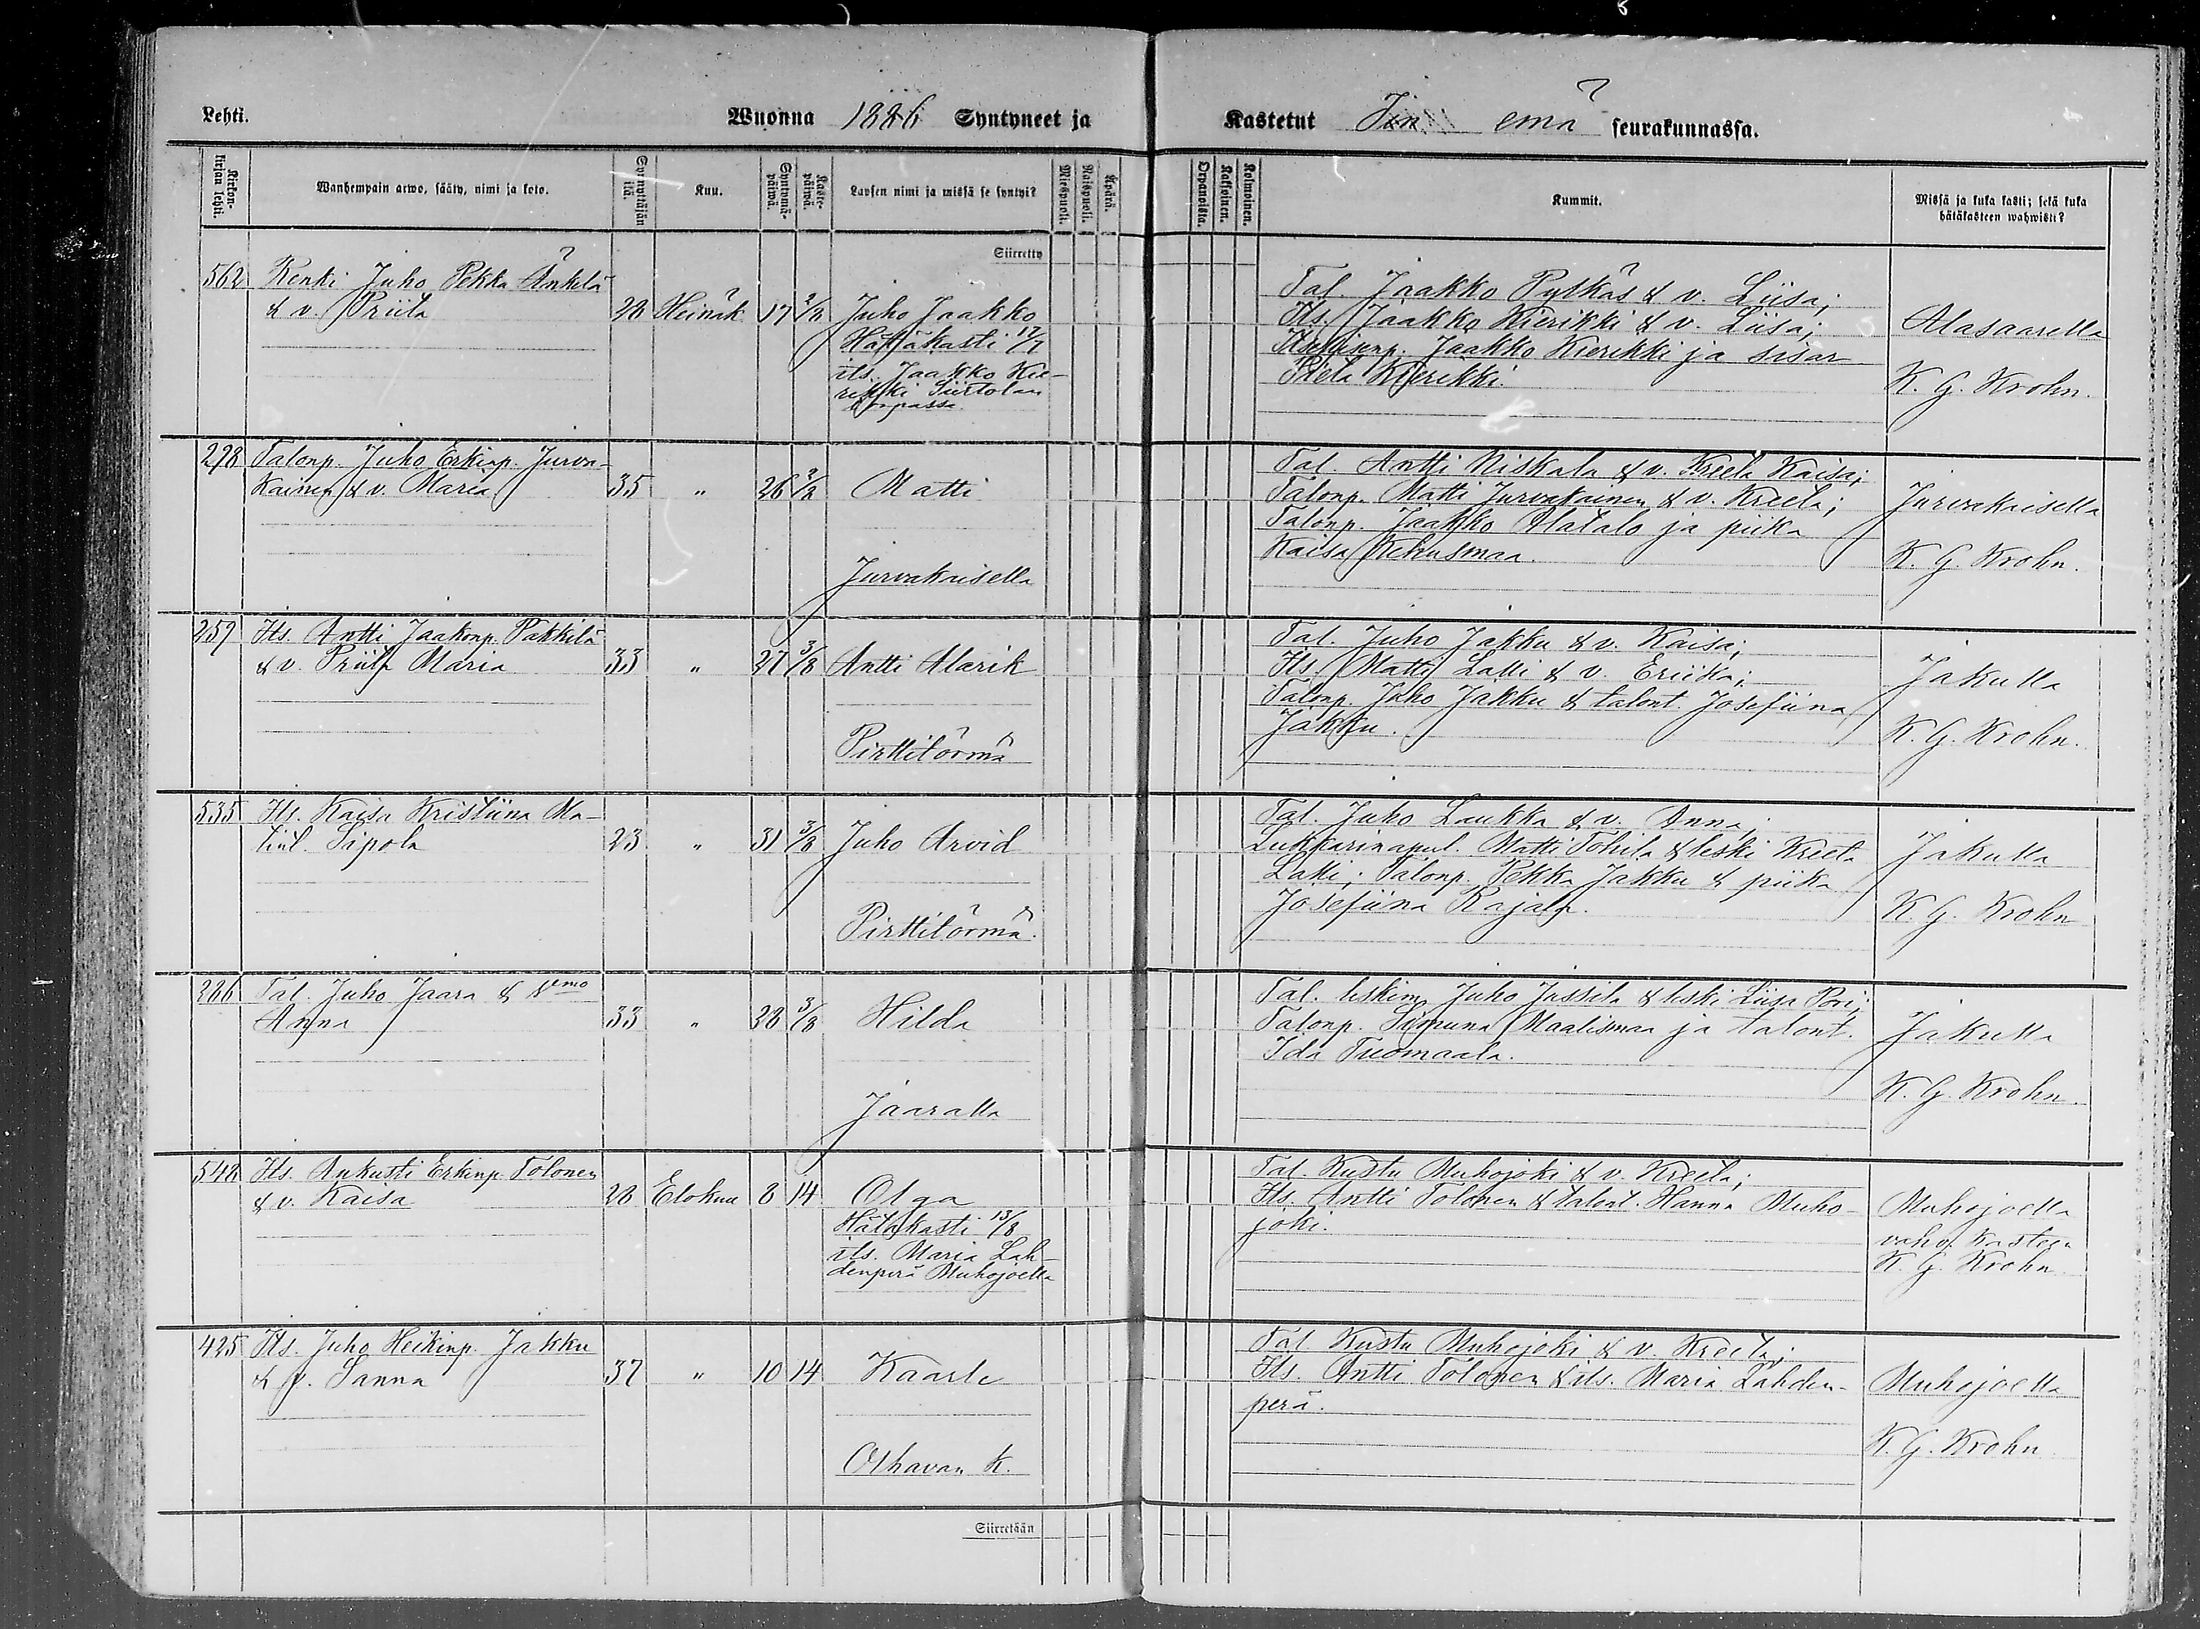 Lehti.
Wuonna 1886 Syntyneet ja
Kastetut Iin emä seurakunnassa.
Kirkonkirjan lehti.
Wanhempain arwo, sääty, nimi ja koto.
Synnyttäjän ikä.
Kuu.
Syntymäpäiwä.
Kastepäiwä.
Lapsen nimi ja missä se syntyi?
Miespuoli.
Naispuoli.
Äpärä.
Orpanoista.
Kaksoinen.
Kolmoinen.
Kummit.
Missä ja kuka kasti; sekä kuka hätäkasteen wahwisti?
Siirretty
562 Renki Juho Pekka Änkilä
& v. Priita 28 Heinäk. 17 2/8 Juho Jaakko
Hätäkasti 17/7
its. Jaakko Kie-
rikki Siirtolan
torpassa
Tal. Jaakko Pytkäs & v. Liisa;
Its. Jaakko Kierikki & v. Liisa;
Jaakko Kierikki ja sisar
Priita Kierikki.
Alasaarella
K. G. Krohn.
298 Talonp. Juho Erkinp. Jurva-
kainen & v. Maria 35 " 26 2/8 Matti
Jurvakaisella
Tal. Antti Niskala & v. Kreeta Kaisa;
Talonp. Matti Jurvakainen & v. Kreeta;
Talonp. Jaakko Alatalo ja piika
Kaisa Kehusmaa.
Jurvakaisella
K. G. Krohn.
259 Its. Antti Jaakonp. Pakkila
& v. Priita Maria 33 " 27 3/8 Antti Alarik
Pirttitörmä
Tal. Juho Jakku & v. Kaisa;
Its. Matti Lalli & v. Eriika;
Talonp. Juho Jakku & talont. Josefiina
Jakku.
Jakulla
K. G. Krohn.
535 Its. Kaisa Kristiina Ma-
tint. Sipola 23 " 31 3/8 Juho Arvid
Pirttitörmä.
Tal. Juho Laukka & v. Anna;
Lukkarinapul. Matti Tohila & leski Kreeta
Lalli; Talonp. Pekka Jakku & piika
Josefiina Rajala.
Jakulla
K. G. Krohn
286 Tal. Juho Jaara & vmo
Anna 33 " 28 3/8 Hilda
Jaaralla
Tal. leskim. Juho Jussila & leski Liisa Pori;
Talonp. Simuna Maalismaa ja talont.
Ida Tuomaala.
Jakulla
K. G. Krohn.
548 Its. Aukusti Erkinp. Tolonen
& v. Kaisa 28 Elokuu 8 14 Olga
Hätäkasti 13/8
its. Maria Lah-
denperä Muhojoella
Tal. Kustu Muhojoki & v. Kreeta;
Its. Antti Tolonen & talont. Hanna Muho-
joki.
Muhojoella
vahv. kasteen
K. G. Krohn
425 Its. Juho Heikinp. Jakku
& v. Sanna 37 " 10 14 Kaarle
Olhavan k.
Tal. Kustu Muhojoki & v. Kreeta;
Its. Antti Tolonen & its. Maria Lahden-
perä.
Muhojoella
K. G. Krohn
Siirretään